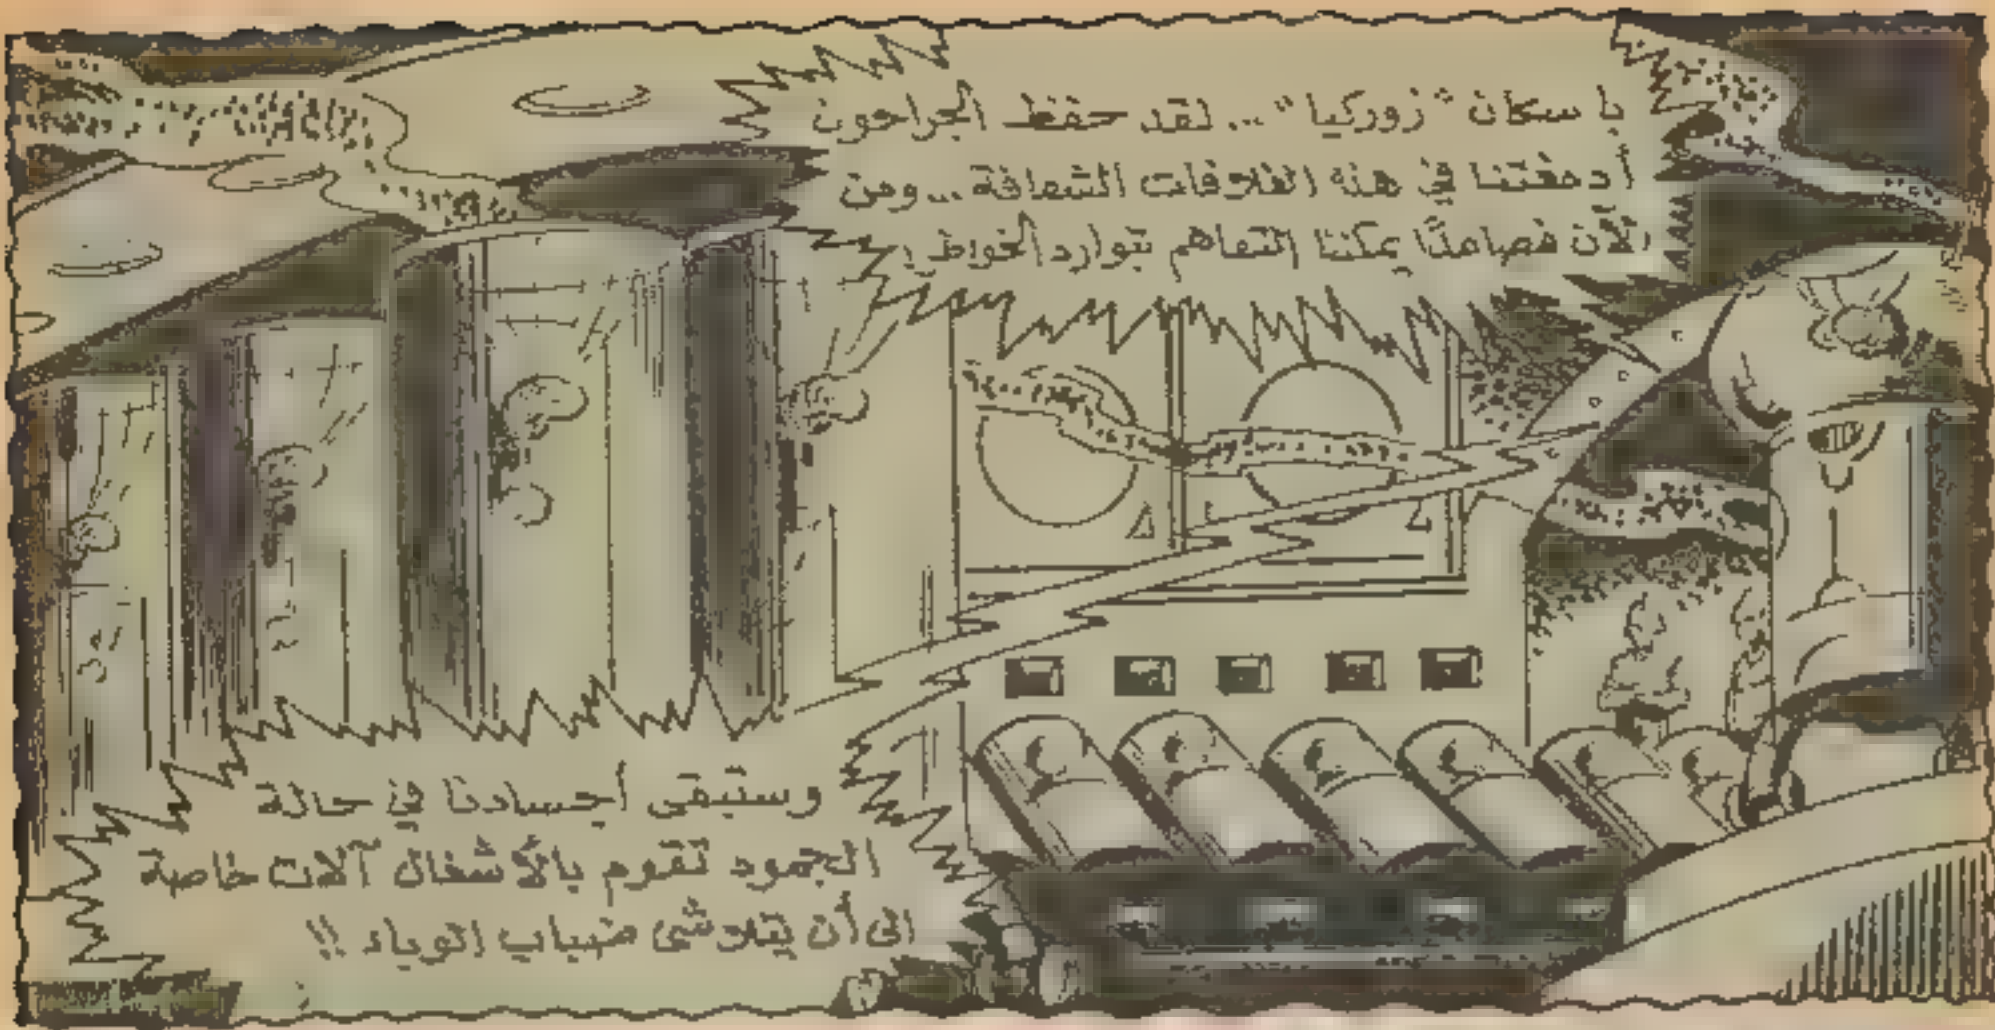 يا سكان "زوركيا"... لقد حفظ الجراحون
أدمغتنا في هذه الغلافات الشفافة... ومن
الآن فصاعدًا يمكننا التفاهم بتوارد الخواطر!
وستبقى أجسادنا في حالة
الجمود تقوم بالأشغال آلات خاصة
الى أن يتلاشى ضباب الوباء !!